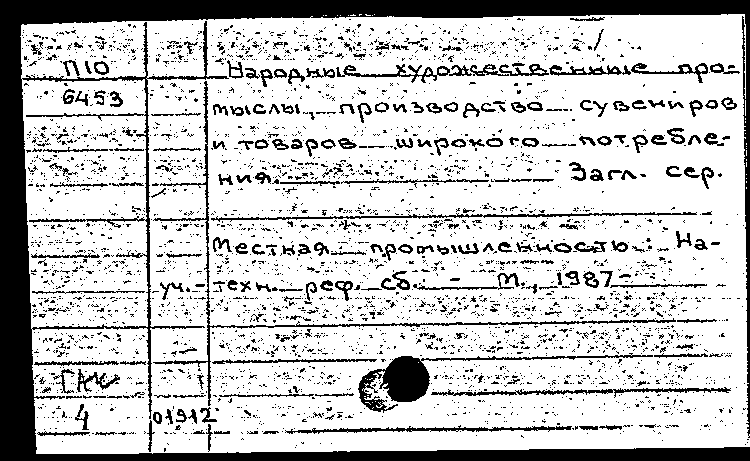 П10 Народные художественные про-
6453 мыслы, производство сувениров
и товаров широкого потребле-
ния. Загл. сер.
Местная промышленность: На-
уч.-техн. реф. сб. - М., 1987-
4 01912